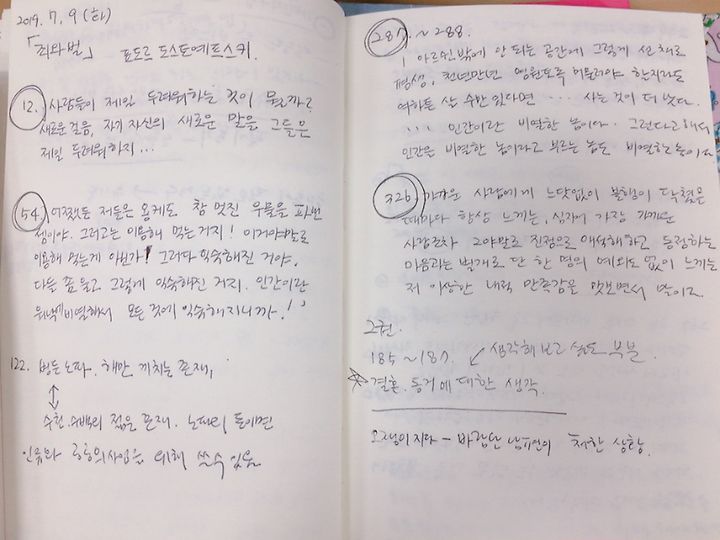 2019. 7. 9 (화)
「죄와벌」 표도르 도스토예프스키.
12. 사람들이 제일 두려워하는 것이 뭘까?
새로운 걸음, 자기 자신의 새로운 말을 그들은
제일 두려워하지...
54. 어쨌든 저들은 용케도 참 멋진 우물을 파낸
셈이야. 그러고는 이용해 먹는 거지! 이거야말로
이용해 먹는게 아닌가! 그러다 익숙해진 거야.
다들 좀 울고 그렇게 익숙해진 거지. 인간이란
비열해서 모든 것에 익숙해지니까!"
122. 병든 노파. 해만 끼치는 존재,
↕
수천. 수백의 젊은 존재. 노파의 돈이면
인류와 공동의 사업을 위해 쓸 수 있음
287. ~ 288.
1 아르신밖에 안 되는 공간에 그렇게 선 채로
평생, 천년만년 영원토록 머물러야 한다라도
여하튼 살 수만 있다면 ... 사는 것이 더 낫다.
... 인간이란 비열한 놈이다. 그런다고 해서
인간을 비열한 놈이라고 부르는 놈도 비열한 놈이다
326. 가까운 사람에게 느닷없이 불행이 닥쳤을
때마다 항상 느끼는, 심지어 가장 가까운
사람조차 그야말로 진정으로 애석해하고 동정하는
마음과는 별개로 단 한 명의 예외도 없이 느끼는
저 이상한 내적 만족감을 맛보면서 말이다.
2권.
185 ~ 187. ↙ 생각해 보고 싶은 부분.
☆결혼. 동거에 대한 생각.
오쟁이 지다 - 바람난 남편의 처한 상황.